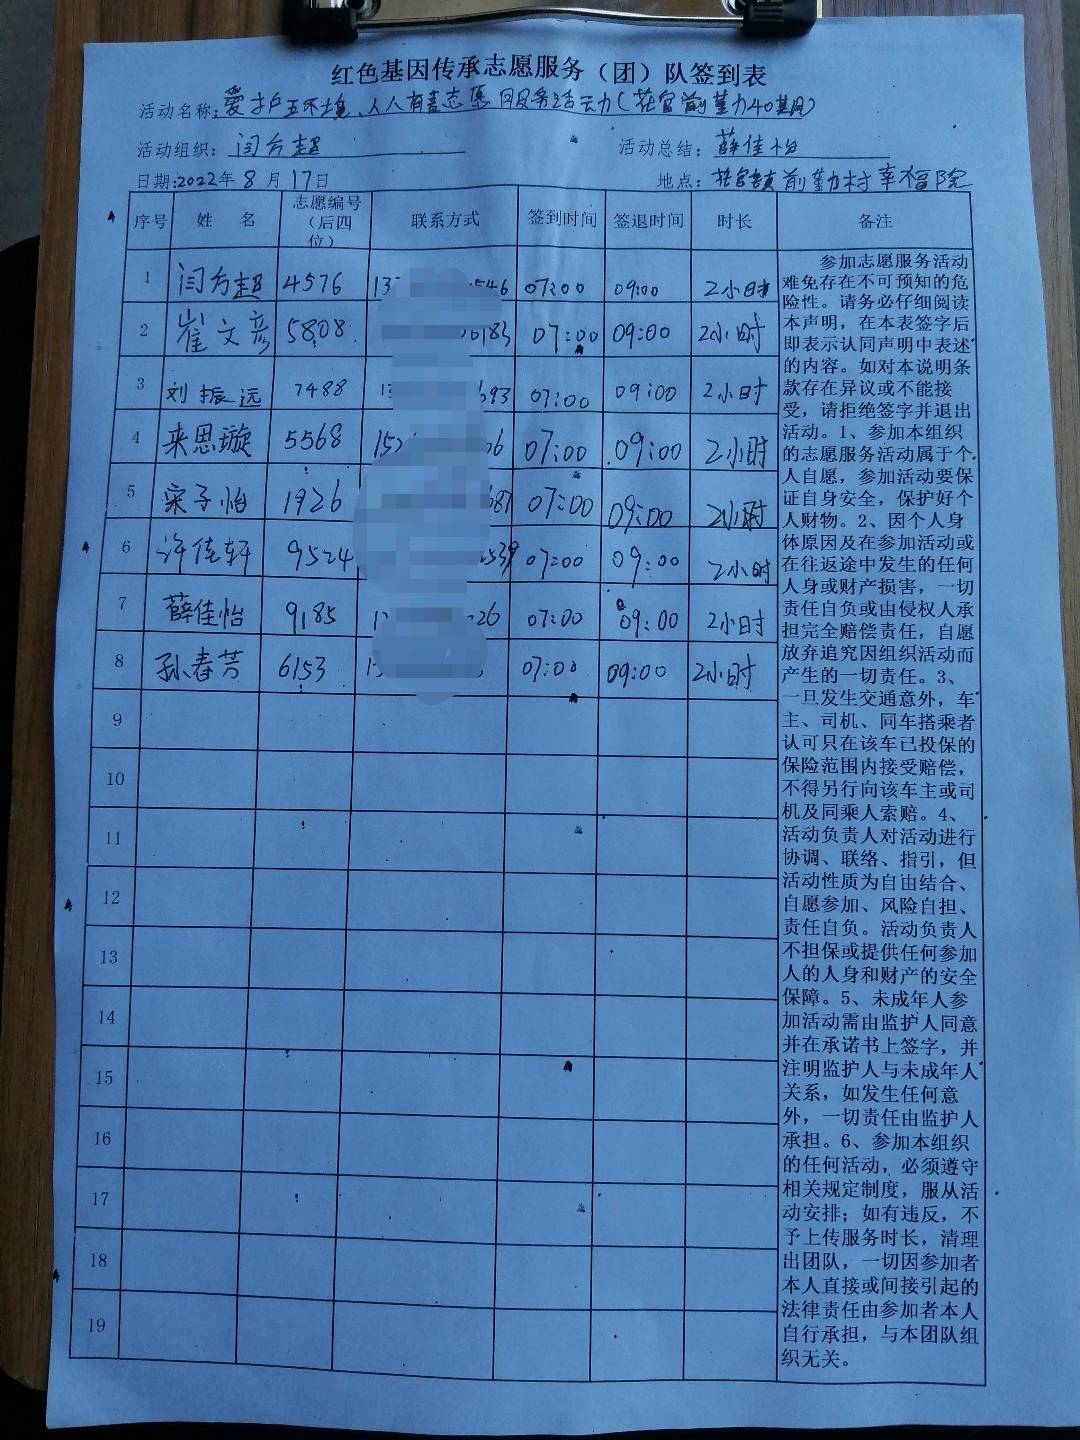 红色基因传承志愿服务（团）队签到表
活动名称：爱护环境、人人有责志愿服务活动（花官前勤
活动组织：闫方超 活动总结：薛佳怡
日期：2022年8月17日 地点：花官镇前勤村幸福院
序号 姓 名 志愿编号（后四位） 联系方式 签到时间 签退时间 时长 备注
1 闫方超 4576 07:00 09:00 2小时
2 崔文彦 5808 07:00 09:00 2小时
3 刘振远 7488 07:00 09:00 2小时
4 来思璇 5568 07:00 09:00 2小时
5 宋子怡 1926 07:00 09:00 2小时
6 许佳轩 9524 07:00 09:00 2小时
7 薛佳怡 9185 07:00 09:00 2小时
8 孙春芳 6153 07:00 09:00 2小时
9
10
11
12
13
14
15
16
17
18
19
参加志愿服务活动
难免存在不可预知的危
险性。请务必仔细阅读
本声明，在本表签字后
即表示认同声明中表述
的内容。如对本说明条
款存在异议或不能接
受，请拒绝签字并退出
活动。1、参加本组织
的志愿服务活动属于个
人自愿，参加活动要保
证自身安全，保护好个
人财物。2、因个人身
体原因及在参加活动或
在往返途中发生的任何
人身或财产损害，一切
责任自负或由侵权人承
担完全赔偿责任，自愿
放弃追究因组织活动而
产生的一切责任。3、
一旦发生交通意外，车
主、司机、同车搭乘者
认可只在该车已投保的
保险范围内接受赔偿，
不得另行向该车主或司
机及同乘人索赔。4、
活动负责人对活动进行
协调、联络、指引，但
活动性质为自由结合、
自愿参加、风险自担、
责任自负。活动负责人
不担保或提供任何参加
人的人身和财产的安全
保障。5、未成年人参
加活动需由监护人同意
并在承诺书上签字，并
注明监护人与未成年人
关系，如发生任何意
外，一切责任由监护人
承担。6、参加本组织
的任何活动，必须遵守
相关规定制度，服从活
动安排；如有违反，不
予上传服务时长，清理
出团队，一切因参加者
本人直接或间接引起的
法律责任由参加者本人
自行承担，与本团队组
织无关。